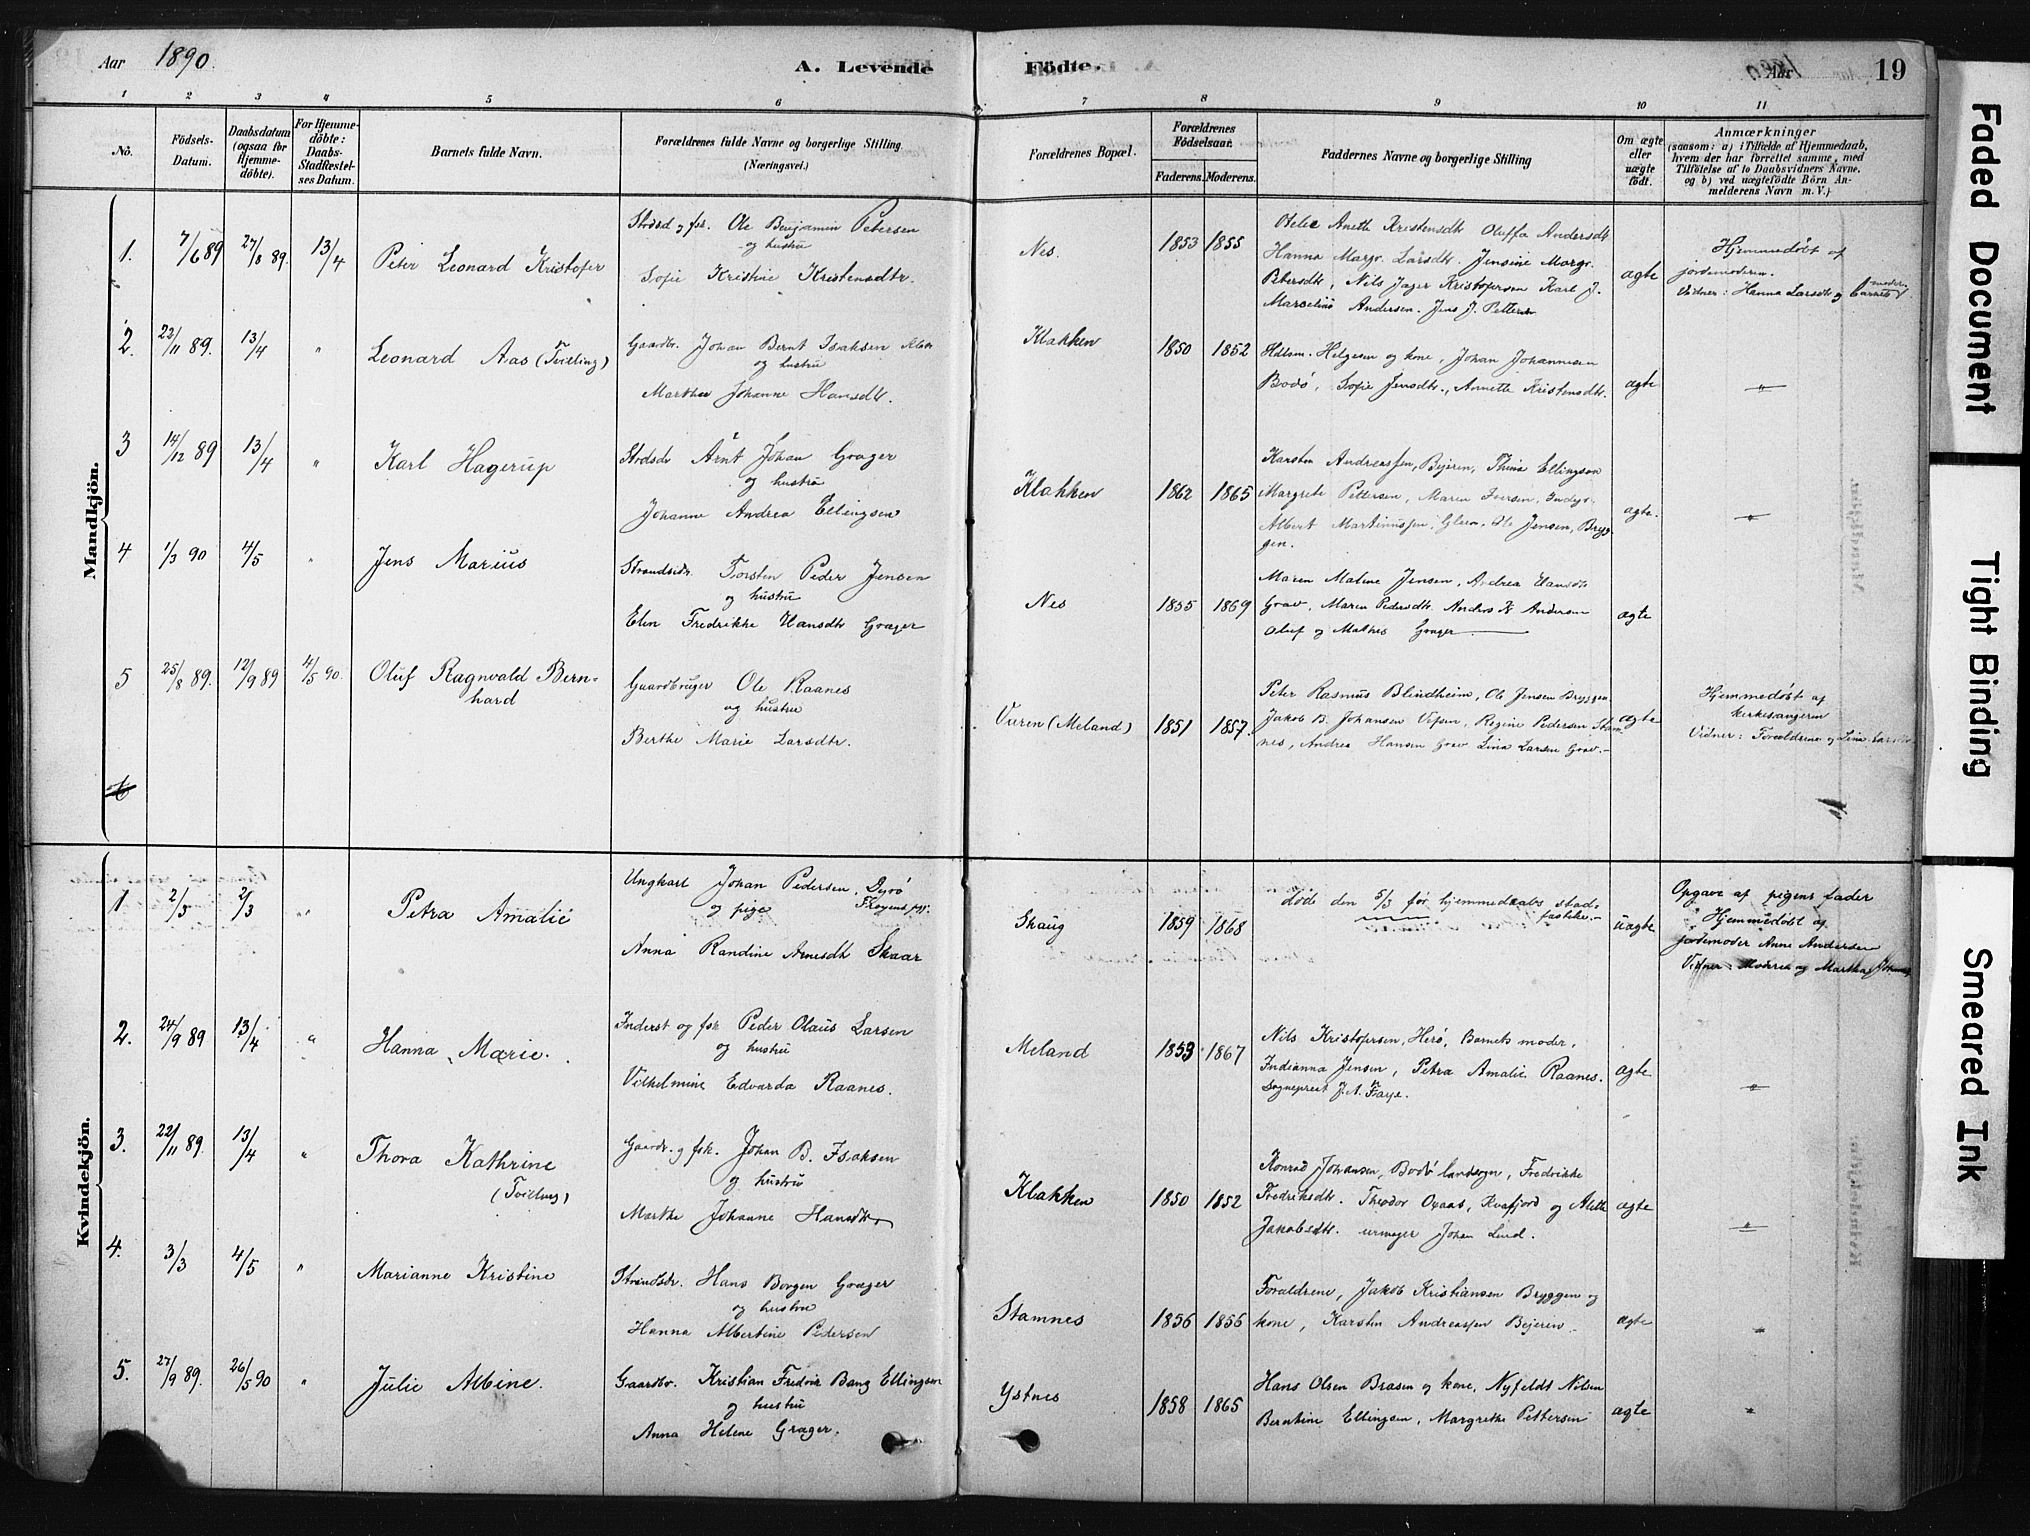 Aar 1890. A. Levende Födte. Aar 1890 19
1 2 3 4 5 6 7 8 9 10 11
No. Födsels-Datum. Daabsdatum (ogsaa for Hjemmedöbte). For Hjemmedöbte: Daabs-Stadfæstelses Datum. Barnets fulde Navn. Forældrenes fulde Navne og borgerlige Stilling (Næringsvei.) Forældrenes Bopæl. Forældrenes Födselsaar. Faderens. Moderens. Faddernes Navne og borgerlige Stilling Om ægte eller uægte födt. Anmærkninger (saasom: a) i Tilfælde af Hjemmedaab, hvem der har forrettet samme, med Tilföielse af to Daabsvidners Navne. og b) ved uægtefödte Börn Anmelderens Navn m. V.)
Mandkjön.
1. 7/6 89 27/8 89. 13/4 Peter Leonard Kristofer
Ole Benjamin Petersen
og hustru
Sofie Kristine Kristensdtr.
Nes. 1853 1855
Anette Kristensdtr Oluffa Andersdtr.
Hanna Margr. Larsdtr. Jensine Margr.
Petersdtr, Nils Jager Kristofersen Karl J.
Marcelius Andersen. Jens J. Petters
ægte
Hjemmedøbt af
jordemoderen.
Vidner: Hanna Larsdtr og
2. 22/11 89. 13/4 " Leonard Aas (Tvilling)
Gaardbr. Johan Bernt Isaksen
og hustru
Martha Johanne Hansdtr.
Klakken 1850 1852
Helgesen og kone, Johan Johannesen
Bodø, Sofie Jensdtr., Annette Kristensdtr.
ægte "
3 14/12 89 13/4 " Karl Hagerup
Arnt Johan Grager
og hustru
Johanne Andrea Ellingsen
Klakken 1862 1865
Karsten Andreassen, Bejeren, Thina Ellingsen
Margrete Pettersen, Maren Iversen, Indyr.
Albert Martinussen, Gleen. Ole Jensen, Bryg
gen.
ægte. "
4 1/3 90 4/5 " Jens Marius
Strandsidr. Torsten Peder Jensen
og hustru
Elen Fredrikke Hansdtr Grager
Nes 1855 1869
Maren Malene Jensen, Andrea Hansdtr
Grav, Maren Pedersdtr. Anders Andersen
Oluf og Mathes Grager
ægte
5 25/8 89. 12/9 89 4/5 90. Oluf Ragnvald Bern-
hard
Gaardbruger Ole Raanes
og hustru
Berthe Marie Larsdtr.
Vuren (Meland) 1851 1857.
Peter Rasmus Blindheim, Ole Jensen Bryggen
Jakob B. Johansen Vefsen, Regine Pedersen Stam-
nes, Andrea Hansen Grav Lina Larsen Grav.
ægte
Hjemmedøbt af
kirkesangeren
Vidner: Forældrene og Lina
6
Kvindekjön.
1 2/3 2/3 " Petra Amalie
Ungkarl Johan Pedersen, Dyrø
og pige
Anna Randine Arnesdtr Skaar
Skaug 1859 1868
døde den 5/3 før hjemmedaabs stad-
fæstelse.
uægte
Opgave af pigens fader
Hjemmedøbt af
jordemoder Anne Andersen
Vidner: Moderen og Martha
2. 24/9 89 13/4 " Hanna Marie.
Inderst og fsk. Peder Olaus Larsen
og hustru
Vilhelmine Edvarda Raanes.
Meland 1859 1867
Nils Kristofersen, Herø, Barnets moder,
Indianna Jensen, Petra Amalie Raanes.
Sogneprest J. A. Faye.
ægte "
3. 22/11 89. 13/4 " Thora Kathrine
(Tvilling)
Gaardbr. og fsk. Johan B. Isaksen
og hustru
Marthe Johanne Hansdtr
Klakken 1850 1852
Konrad Johansen, Bodø landsogn, Fredrikke
Fredriksdtr. Theodor Oxaas, Kvæfjord og Alette
Jakobsdtr. urmager Johan Lind.
ægte "
4. 3/3 4/5 " Marianne Kristine
Strandsdr. Hans Borgen Grager
og hustru
Hanna Albertine Pedersen
Stamnes 1856 1856
Forældrene, Jakob Kristiansen Bryggen og
kone, Karsten Andreassen Bejeren.
ægte "
5. 27/9 89. 26/5 90 " Julie Albine.
Gaardbr. Kristian Fredrik Bang Ellingsen
og hustru
Anna Helene Grager.
Ystnes 1858 1865
Hans Olsen Brasen og kone, Nyfeldt Nilsen
Berntine Ellingsen, Margrethe Pettersen
ægte "
Faded Document
Tight Binding
Smeared Ink